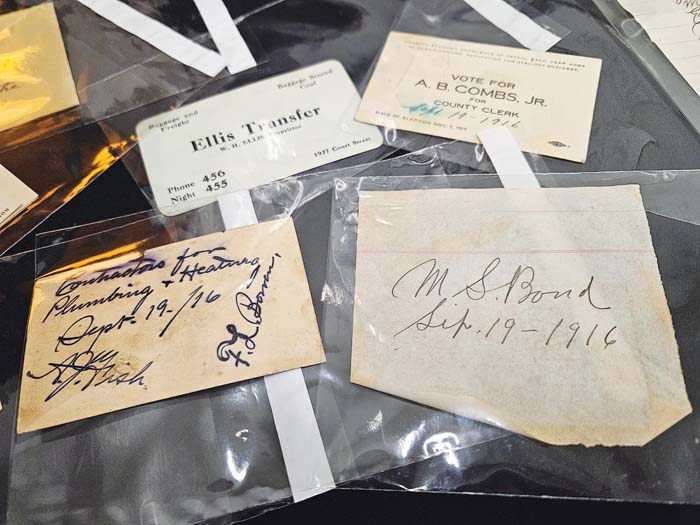 Baggage and
Freight
Baggage Stored
Coal
Ellis Transfer
W. H. ELLIS, Proprietor
1927 Court Street
Phone 456
Night 455
VOTE FOR
A. B. COMBS, JR.
FOR
COUNTY CLERK
Sept 19-1916
DATE OF ELECTION NOV. 7, 1916
Contractors for
Plumbing & Heating
Sept. 19-/16
Fish
F. L.
M S. Bond
Sep. 19-1916